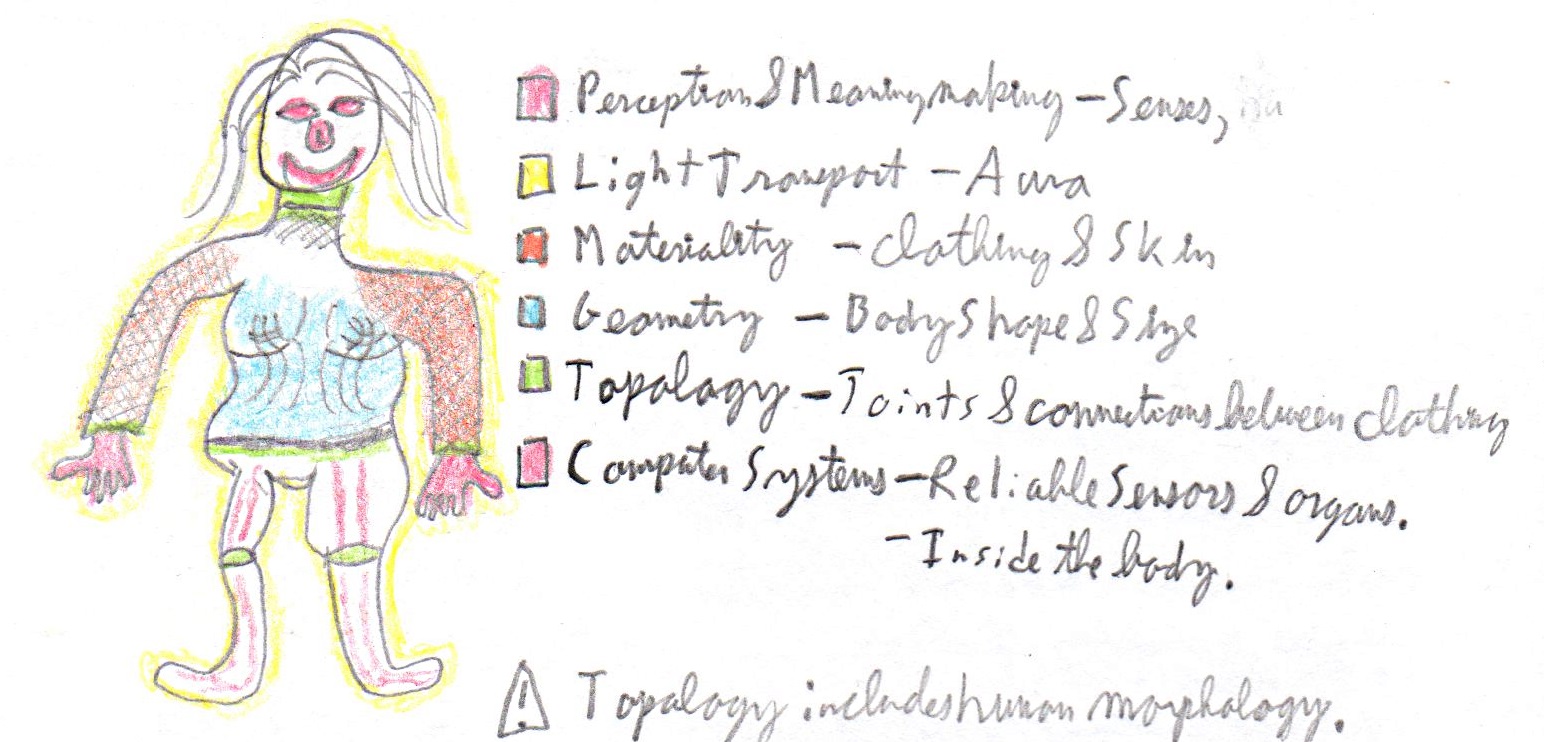 Perception & Meaningmaking - Senses,
Light Transport - Aura
Materiality - Clothing & Skin
Geometry - Body Shape & Size
Topology - Joints & connections between clothing
Computer Systems - Reliable Sensors & organs.
- Inside the body.
! Topology includes human morphology.